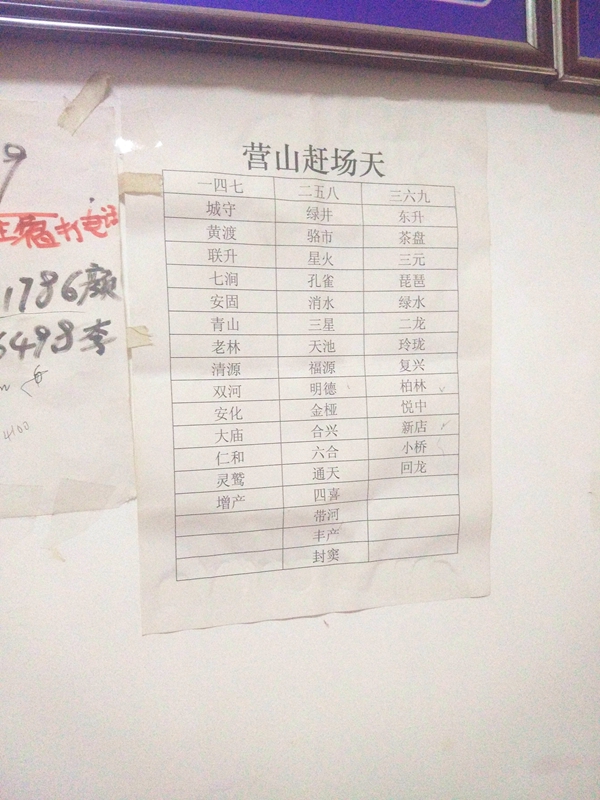 营山赶场天
一四七 二五八 三六九
城守 绿井 东升
黄渡 骆市 茶盘
联升 星火 三元
七涧 孔雀 琵琶
安固 消水 绿水
青山 三星 二龙
老林 天池 玲珑
清源 福源 复兴
双河 明德 柏林
安化 金桠 悦中
大庙 合兴 新店
仁和 六合 小桥
灵鹫 通天 回龙
增产 四喜
带河
丰产
封窦
9
打电话
1786颜
6498李
4100